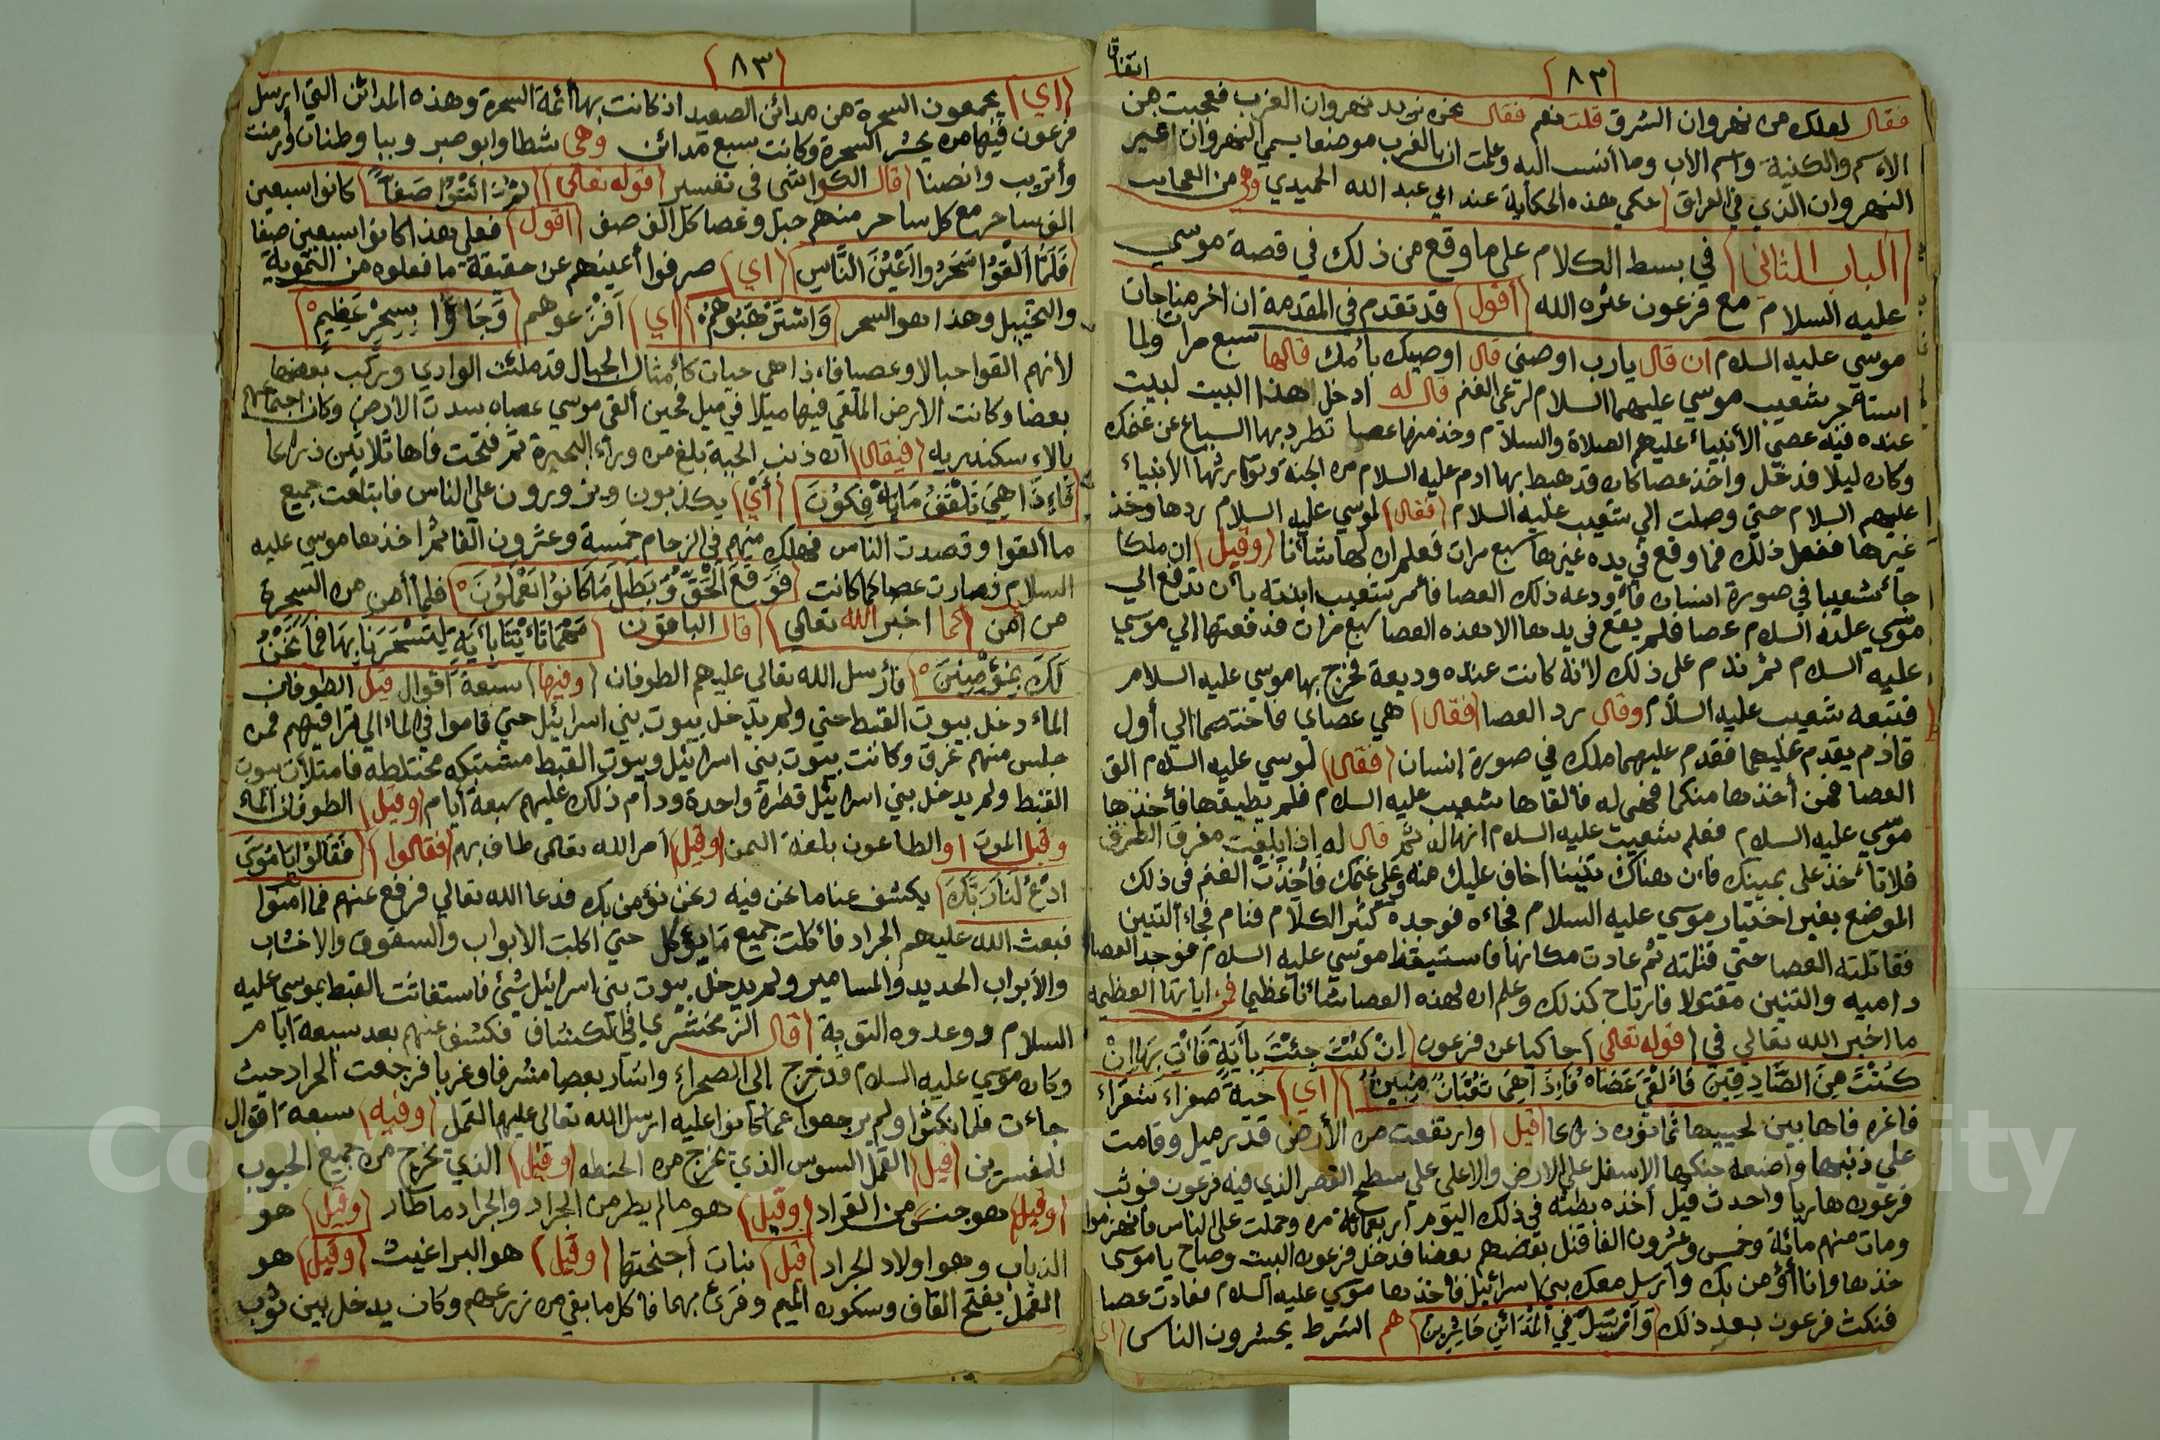 (٨٣)
اتفاق
فقال لعلك من نهروان الشرق قلت نعم فقال نحن نريد نهروان الغرب فعجبت من
الاسم والكنية واسم الاب وما أنسب اليه وعلمت ان بالغرب موضعا يسمي النهروان اغير
النهروان الذي في العراق (حكي هذه الحكأية عند ابي عبد الله الحميدي وهي من العجائب
(الباب الثاني) في بسط الكلام علي ما وقع من ذلك في قصة موسي
عليه السلام مع فرعون عدوه الله (أقول) قد تقدم في المقدمة ان اخر مناجات
موسي عليه السلام ان قال يارب اوصني قال اوصيك بأمك قالها سبع مرات ولما
استأجر شعيب موسي عليهما السلام لرعي الغنم قال له ادخل هذا البيت لبيت
عنده فيه عصي الأنبياء عليهم الصلاة والسلام وخذ منها عصا تطرد بها السباع عن غنمك
وكان ليلا فدخل واخذ عصا كان قد هبط بها ادم عليه السلام من الجنة وتوارثها الأنبياء
عليهم السلام حتي وصلت الي شعيب عليه السلام (فقال) لموسي عليه السلام ردها وخذ
غيرها ففعل ذلك فما وقع في يده غيرها سبع مرات فعلم أن لها شأنا (وقيل) ان ملكا
جاء شعيبا في صورة انسان فأودعه ذلك العصا فأمر شعيب ابنته بأن تدفع الي
موسي عليه السلام عصا فلم يقع في يدها الا هذه العصا سبع مرات فدفعتها إلي موسي
عليه السلام ثم ندم علي ذلك لأنه كانت عنده وديعة فخرج بها موسي عليه السلام
فتبعه شعيب عليه السلام وقال رد العصا (فقال) هي عصاي فاختصما الي أول
قادم يقدم عليهما فقدم عليهما ملك في صورة إنسان (فقال) لموسي عليه السلام الق
العصا فمن أخذها منكما فهي له فالقاها شعيب عليه السلام فلم يطيقها فأخذها
موسي عليه السلام فعلم شعيب عليه السلام انها له ثم قال له إذا بلغت مفرق الطرق
فلا تأخذ علي يمينك فان هناك تنينا أخاف عليك منه وعلي غنمك فأخذت الغنم في ذلك
الموضع بغير اختيار موسي عليه السلام فجاءه فوجده كثير الكلام فنام فجاء التنين
فقاتلته العصا حتي قتلته ثم عادت مكانها فاستيقظ موسي عليه السلام فوجد العصا
داميه والتنين مقتولا فارتاح كذلك وعلم ان لهذه العصا شأنا عظيما اياتها العظيمه
ما اخبر الله تعالي في (قوله تعالي) حاكيا عن فرعون (ان كنت جئت بأية فأت بها ان
كنت من الصادقين فألقي عصاه فإذا هي ثعبان مبين) (اي) حية صفراء شعراء
فاغره فاها بين لحييها ثمانون ذراعا (قيل) وارتفعت من الأرض قدر ميل وقامت
علي ذنبها واضعه حنكها الاسفل علي الارض والاعلي علي سطح القصر الذي فيه فرعون فوثب
فرعون هاربا واحدث قيل أخذه بطنه في ذلك اليوم اربعمائة مره وحملت علي الناس فانهزموا
ومات منهم مائة وخمس وعشرون الفا قتل بعضهم بعضا فدخل فرعون البيت وصاح يا موسي
خذها وانا أؤمن بك وأرسل معك بني اسرائيل فأخذها موسي عليه السلام فعادت عصا
فنكث فرعون بعد ذلك (وأرسل في المدائن حاشرين) هم الشرط يحشرون الناس (اي
(٨٣)
(اي) يجمعون السحرة من مدائن الصعيد اذ كانت بها أئمة السحرة وهذه المدائن التي ارسل
فرعون فيها من يحشر السحرة وكانت سبع مدائن وهي شطا وابو صير وببا وطنان وأرمنت
وأتريب وانصنا (قال الكواشي في تفسير (قوله تعالي) (ثم ائتوا صفا) كانوا سبعين
الف ساحر مع كل ساحر منهم حبل وعصا كل الف صف (اقول) فعلي هذا كانوا سبعين صفا
(فلما ألقوا سحروا أعين الناس) (اي) صرفوا أعينهم عن حقيقة ما فعلوه من التموية
والتخييل وهذا هو السحر (واسترهبوهم) (اي) أفزعوهم (وجاؤا بسحر عظيم)
لأنهم القوا حبالا وعصيا فاذا هي حيات كأمثال الجبال قد ملئت الوادي وركب بعضها
بعضا وكانت الأرض الملقي فيها ميلا في ميل فحين ألقي موسي عصاه سدت الأرض وكان اجتماعهم
بالإسكندريه (فيقال) ان ذنب الحية بلغ من وراء البحيرة ثم فتحت فاها ثلاثين ذراعا
(فإذا هي تلقف ما يافكون) (أي) يكذبون ويزورون علي الناس فابتلعت جميع
ما ألقوا وقصدت الناس فهلك منهم في الزحام خمسة وعشرون الفا ثم اخذها موسي عليه
السلام فصارت عصا كما كانت (فوقع الحق وبطل ما كانوا يعملون) فلما أمن من السحرة
من أمن (كما اخبر الله تعالي) (قال الباقون (مهما تأتنا به من أية لتسحرنا بها فما نحن
لك بمؤمنين) فأرسل الله تعالي عليهم الطوفان (وفيها) سبعة أقوال قيل الطوفان
الماء دخل بيوت القبط حتي ولم يدخل بيوت بني اسرائيل حتي قاموا في الماء الي تراقيهم فمن
جلس منهم غرق وكانت بيوت بني اسرائيل وبيوت القبط مشتبكه مختلطه فامتلأت بيوت
القبط ولم يدخل بني اسرائيل قطرة واحدة ودام ذلك عليهم سبعة أيام (وقيل) الطوفان الماء
وقيل الموت او الطاعون بلغة اليمن (وقيل) أمر الله تعالي طاف بهم (فقالوا) (فقالوا يا موسي
ادع لنا ربك) يكشف عنا ما نحن فيه ونحن نؤمن بك فدعا الله تعالي فرفع عنهم فما امنوا
فبعث الله عليهم الجراد فأكلت جميع ما يؤكل حتي اكلت الابواب والسقوف والاخشاب
والأبواب الحديد والمسامير ولم يدخل بيوت بني اسرائيل شئ فاستغاثت القبط بموسي عليه
السلام ووعدوه التوبة (قال الزمخشري في الكشاف فكشف عنهم بعد سبعة أيام
وكان موسي عليه السلام قد خرج إلي الصحراء واشار بعصا مشرقا وغربا فرجعت الجراد حيث
جاءت فلما نكثوا ولم يرجعوا عما كانوا عليه ارسل الله تعالي عليهم القمل (وفيه) سبعة اقوال
للمفسرين (قيل) القمل السوس الذي يخرج من الحنطه (وقيل) الذي يخرج من جميع الحبوب
(وقيل) هو جنس من القراد (وقيل) هو ما لم يطر من الجراد والجراد ما طار (وقيل) هو
الذباب وهو اولاد الجراد (قيل) بنات أجنحتها (وقيل) هو البراغيث (وقيل) هو
القمل بفتح القاف وسكون الميم وقرئ بهما فاكل ما بقي من زرعهم وكان يدخل بين ثوب
Copyright © King Saud University